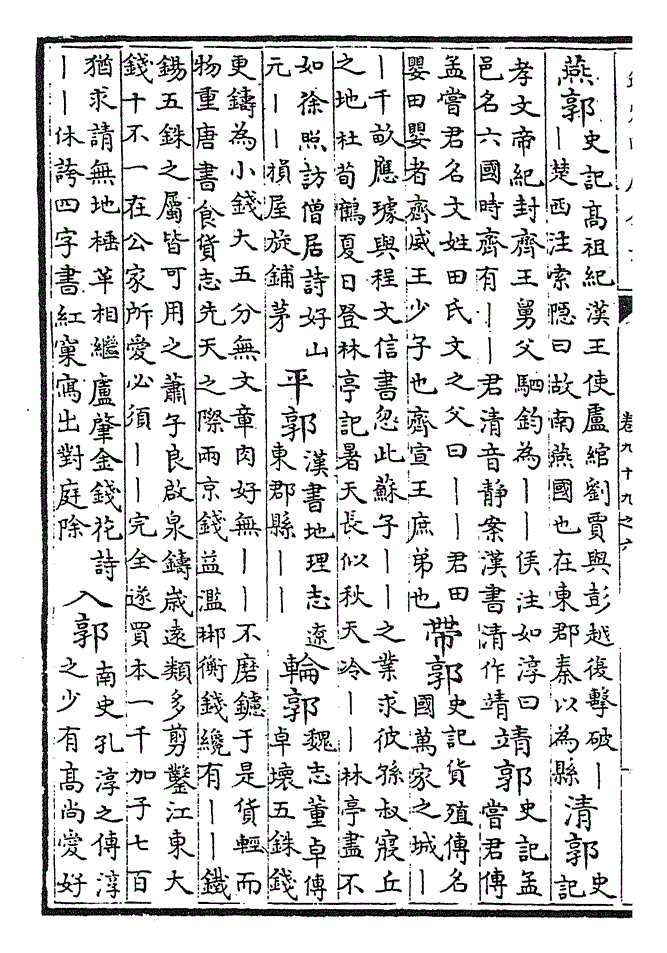 燕郭史記高祖紀漢王使盧綰劉賈與彭越後擊破｜
｜楚西注索隱曰故南燕國也在東郡秦以為縣
清郭史
記
孝文帝紀封齊王舅父駟鈞為｜｜侯注如淳曰
邑名六國時齊有｜｜君清音靜案漢書清作靖
靖郭史記孟
嘗君傳
孟嘗君名文姓田氏文之父曰｜｜君田
嬰田嬰者齊威王少子也齊宣王庶弟也
帶郭史記貨殖傳名
國萬家之城｜
｜千畝應璩與程文信書忽此蘇子｜｜之業求彼孫叔寢丘
之地杜荀鶴夏日登林亭記暑天長似秋天冷｜｜林亭畫不
如徐照訪僧居詩好山
元｜｜損屋旋鋪茅
平郭漢書地理志遼
東郡縣｜｜
輪郭魏志董卓傳
卓壞五銖錢
更鑄為小錢大五分無文章肉好無｜｜不磨鑢于是貨輕而
物重唐書食貨志先天之際兩京錢益濫郴衡錢纔有｜｜鐵
錫五銖之屬皆可用之蕭子良啟泉鑄歲遠類多剪鑿江東大
錢十不一在公家所愛必須｜｜完全遂買本一千加子七百
猶求請無地棰革相繼盧肇金錢花詩
｜｜休誇四字書紅窠寫出對庭除
入郭南史孔淳之傳淳
之少有高尚愛好
卷九十九之